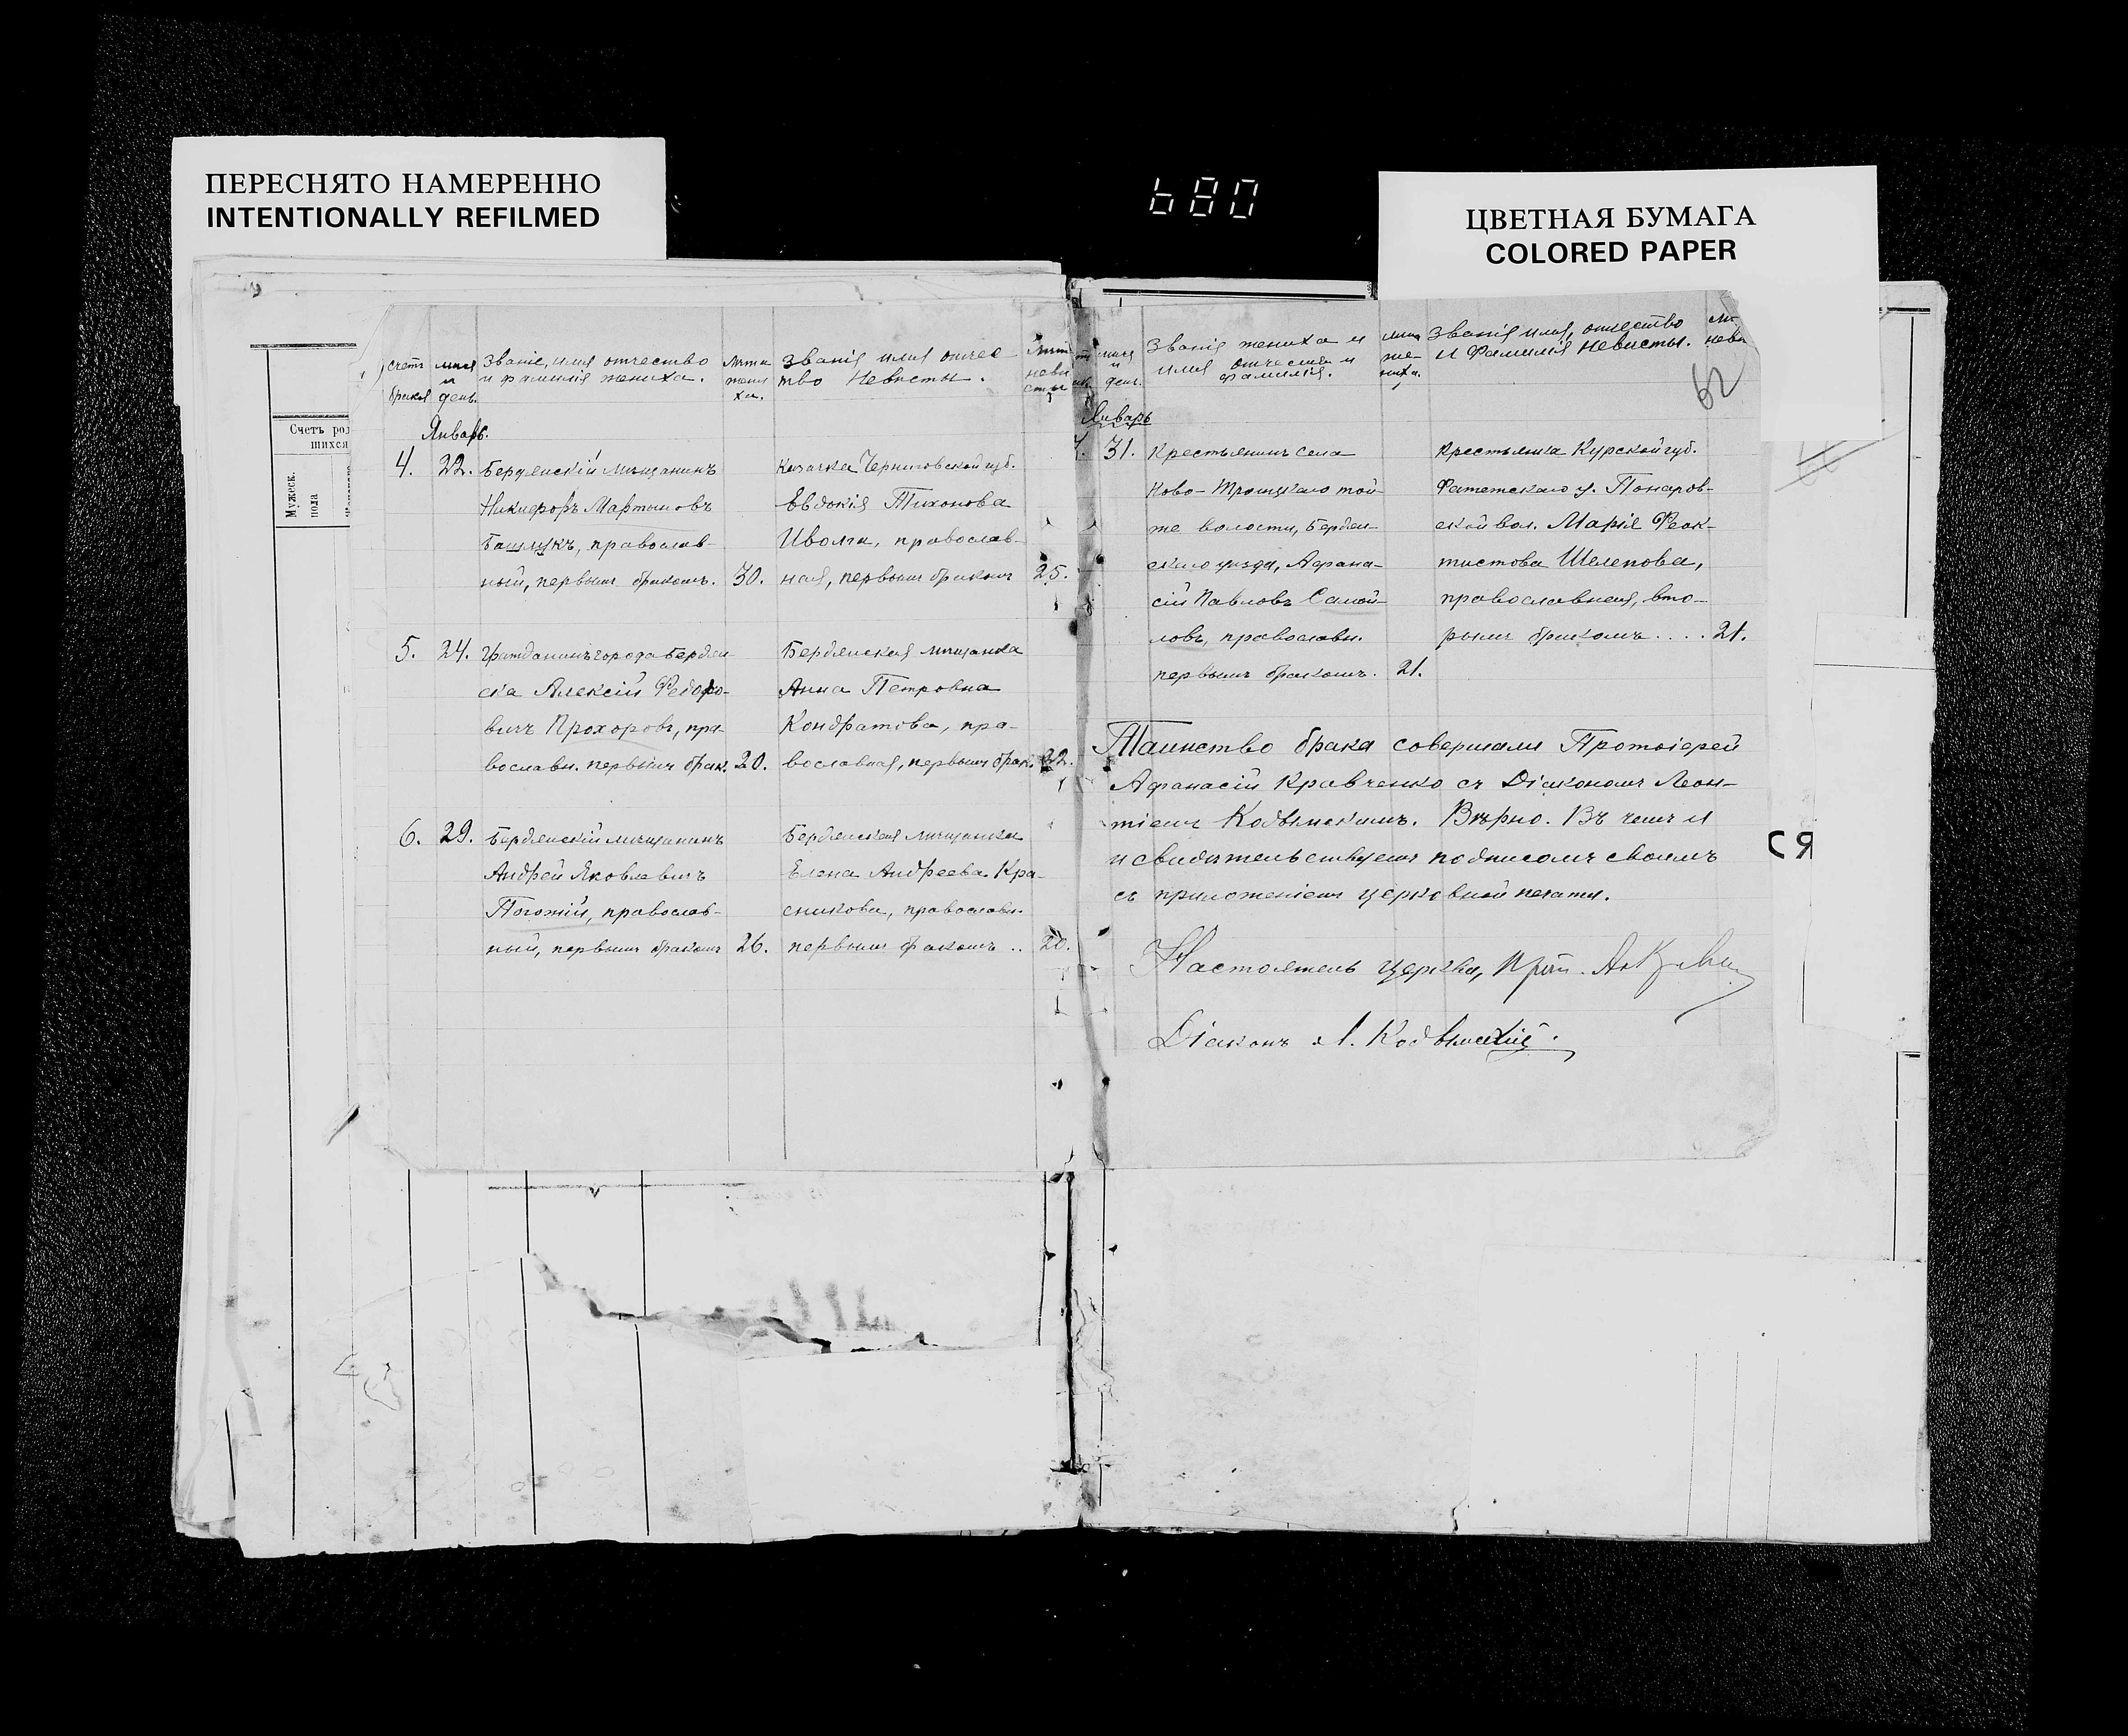 ПЕРЕСНЯТО НАМЕРЕННО
INTENTIONALLY REFILMED
680
ЦВЕТНАЯ БУМАГА
COLORED PAPER
Счетъ
брака
и
день.
Званіе, имя отчество
и фамилія жениха.
Лѣта
жени
ха.
Званія имя отчес
тво Невѣсты.
Январь.
4. 22. Бердянскій мѣщанинъ
Никифоръ Мартыновъ
Башлукъ, православ-
ный, первымъ бракомъ. 30.
Козачка Черниговской губ.
Евдокія Тихонова
Иволга, православ-
ная, первымъ бракомъ 25.
5. 24. Гражданинъ города Бердян
ска Алексій Федоро-
вичъ Прохоровъ, пра-
вославн. первымъ брак. 20.
Бердянская мѣщанка
Анна Петровна
Кондратова, пра-
вославная, первымъ брак. 22.
6. 29. Бердянскій мѣщанинъ
Андрей Яковлевичъ
Погожій, православ-
ный, первымъ бракомъ 26.
Бердянская мѣщанка
Елена Андреева Кра-
сникова, православн.
первымъ бракомъ .. 20.
Счетъ род
шихся
Мужеск.
пола
и
день.
Званія жениха и
имя отчество и
фамилія.
же-
ниха.
Званія имя, отчество
и Фамилія Невѣсты.
62
Январь
7. 31. Крестьянинъ села
Ново-Троицкаго той-
же волости, Бердян-
скаго уѣзда, Афана-
сій Павловъ Самой-
ловъ, православн.
первымъ бракомъ. 21.
Крестьянка Курской губ.
Фатежскаго у. Понаров-
ской вол. Марія Феок-
тистова Шелепова,
православная, вто-
рымъ бракомъ .... 21.
Таинство брака совершали Протоіерей
Афанасій Кравченко съ Діакономъ Леон-
тіемъ Кодымскимъ. Вѣрно. Въ чемъ и
и свидѣтельствуемъ подписомъ своимъ
съ приложеніемъ церковной печати.
Настоятель церкви, Прот.
Діаконъ Л. Кодымскій.
СЯ